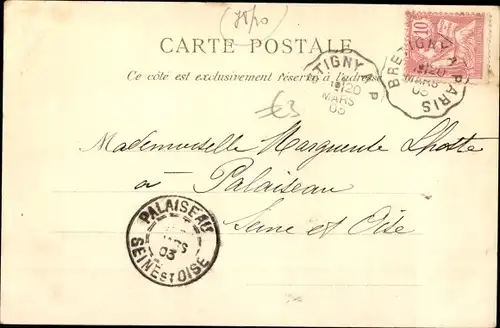 CARTE POSTALE
Ce côté est exclusivement réservé à l'adresse
BRETIGNY A PARIS
20
MARS
03
TIGNY P
20
MARS
03
10
€3
Mademoiselle Marguerite Lhotte
à Palaiseau
Seine et Oise
PALAISEAU
RS
03
SEINE ET OISE